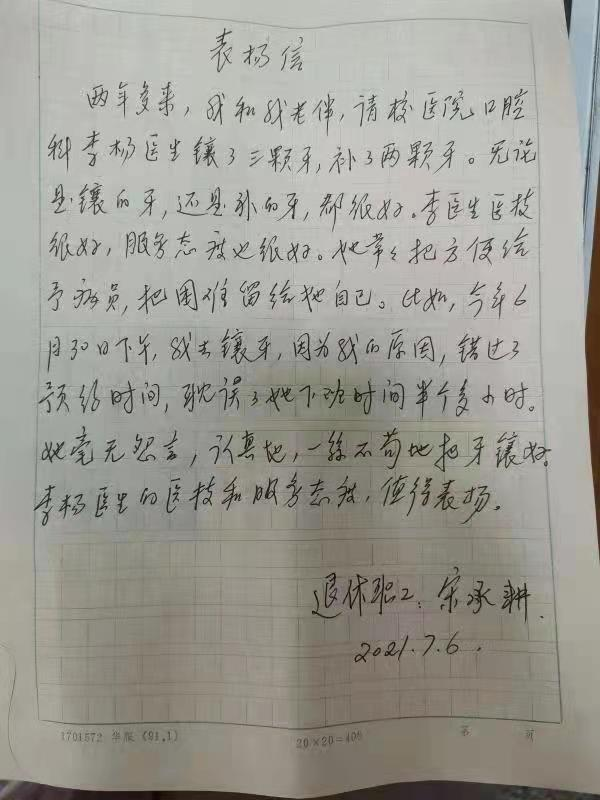 表扬信
两年多来，我和我老伴，请校医院口腔
科李杨医生镶了三颗牙，补了两颗牙。无论
是镶的牙，还是补的牙，都很好。李医生医技
很好，服务态度也很好。她常々把方便给
予病员，把困难留给她自己。比如，今年6
月30日下午，我去镶牙，因为我的原因，错过了
预约时间，耽误了她下班时间半个多小时。
她毫无怨言，认真地，一丝不苟地把牙镶好。
李杨医生的医技和服务态度，值得表扬。
退休职工：宋承耕.
2021.7.6.
1701572 华服 (91.1)
20×20=400
第 页